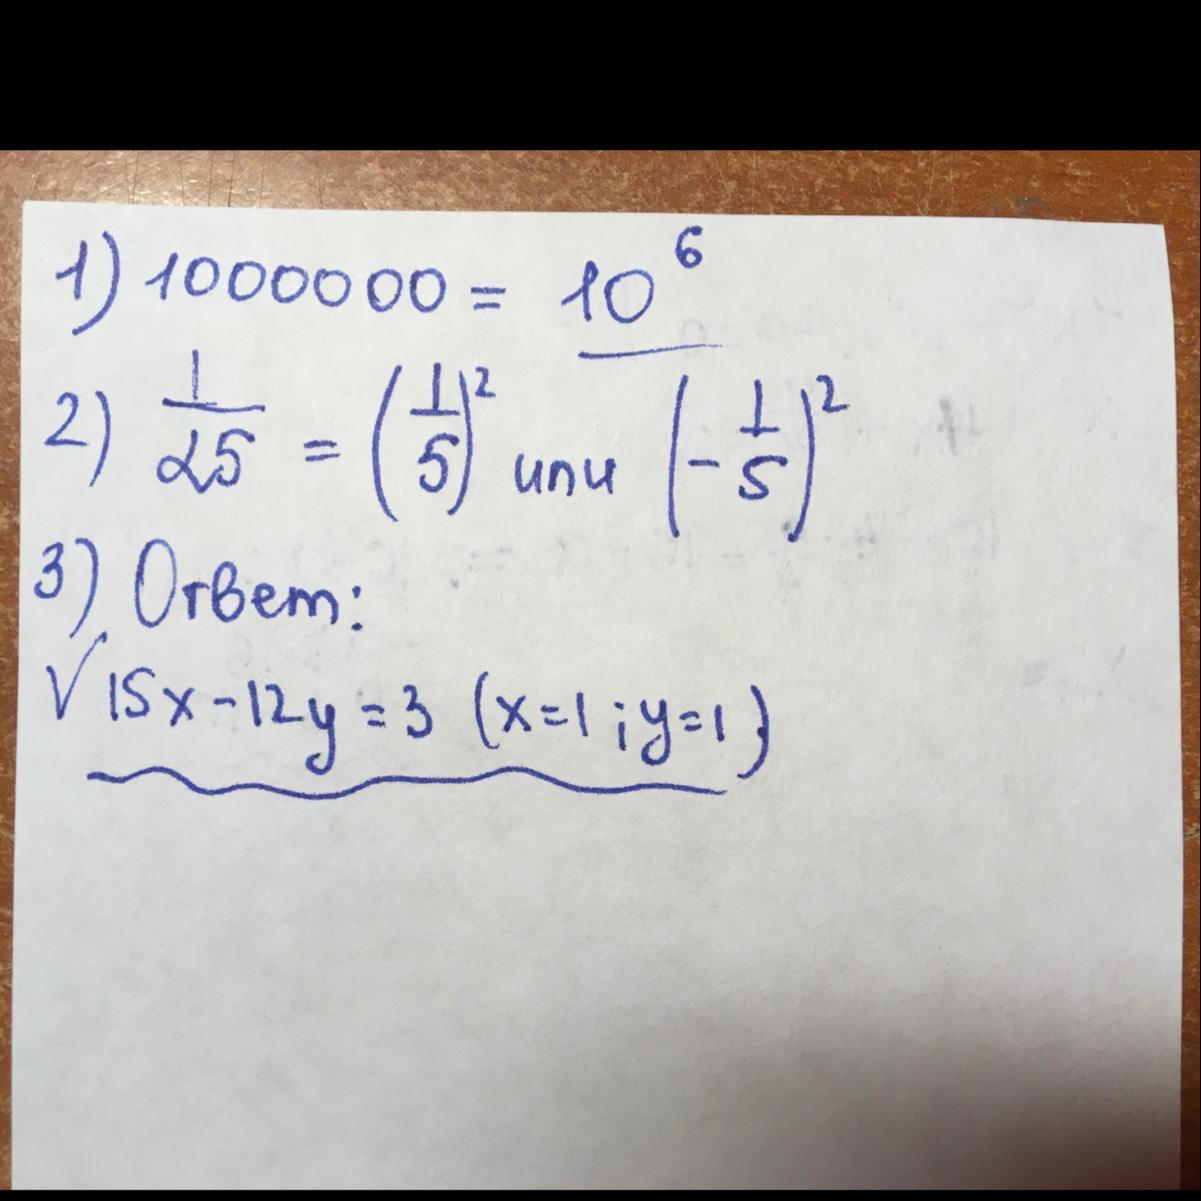 1) 1000000 = 10⁶
2) 1/25 = (1/5)² или (-1/5)²
3) Ответ:
√ 15x-12y=3 (x=1; y=1)